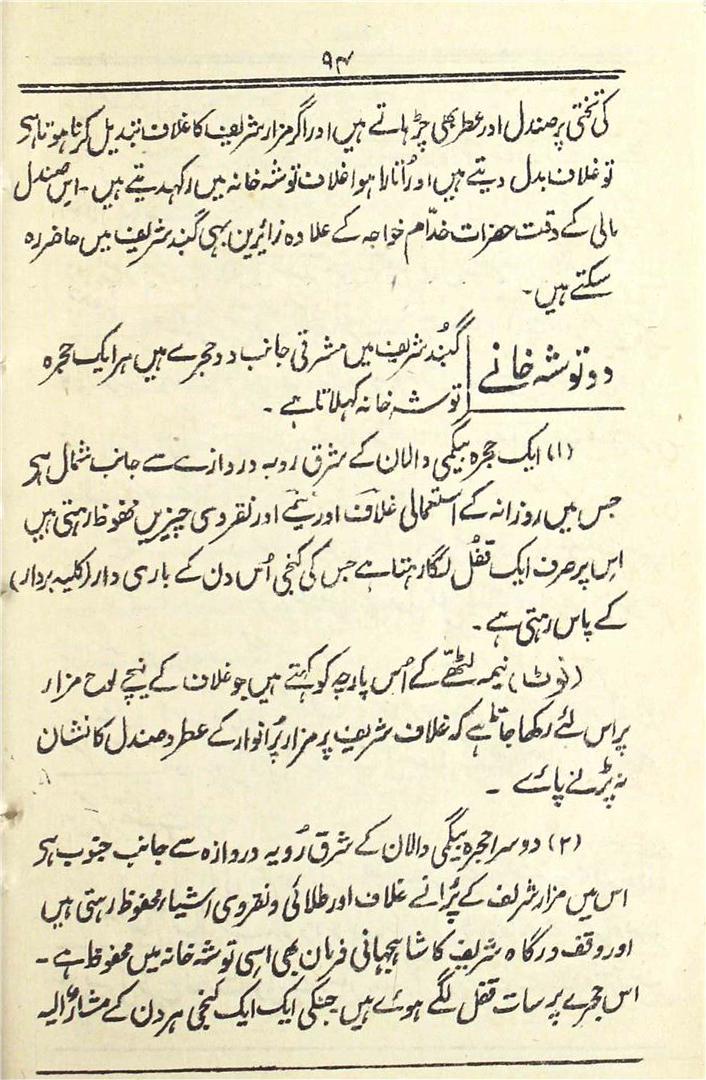 ۹۴
کی تختی پر صندل اور عطر بھی چڑہاتے ہیں اور اگر مزار شریف کا غلاف تبدیل کرنا ہوتا ہی
تو غلاف بدل دیتے ہیں اور اُتارا ہوا غلاف توشہ خانہ میں رکہدیتے ہیں ۔ اس صندل
مالی کے وقت حضرات خدّام خواجہ کے علاوہ زائرین بہی گنبد شریف میں حاضر رہ
سکتے ہیں ۔
دو توشہ خانے
گنبُد شریف میں مشرقی جانب دو حجرے ہیں ہر ایک حجرہ
توشہ خانہ کہلاتا ہے ۔
(۱) ایک حجرہ بیگمی دالان کے شرق رویہ دروازے سے جانب شمال ہی
جس میں روزانہ کے استعمالی غلاف اور نیمے اور نقروسی چیزیں محفوظ رہتی ہیں
اس پر صرف ایک قفُل لگا رہتا ہے جس کی کنجی اُس دن کے باری دار (کلید بردار)
کے پاس رہتی ہے ۔
(نوٹ) نیمہ لٹھّے کے اُس پارچہ کو کہتے ہیں جو غلاف کے نیچے لوح مزار
پر اس لئے رکھا جاتا ہے کہ غلاف شریف پر مزار پُر انوار کے عطر و صندل کا نشان
نہ پڑنے پائے ۔
(۲) دوسرا حجرہ بیگمی دالان کے شرق رُویہ دروازہ سے جانب جنوب ہی
اس میں مزار شریف کے پُرانے غلاف اور طلائی و نقروی اشیاء محفوظ رہتی ہیں
اور وقف درگاہ شریف کا شاہجہانی فرمان بھی اسی توشہ خانہ میں محفوظ ہے ۔
اس حجرے پر سات قفل لگے ہوئے ہیں جنکی ایک ایک کنجی ہر دن کے مشارٌالیہ